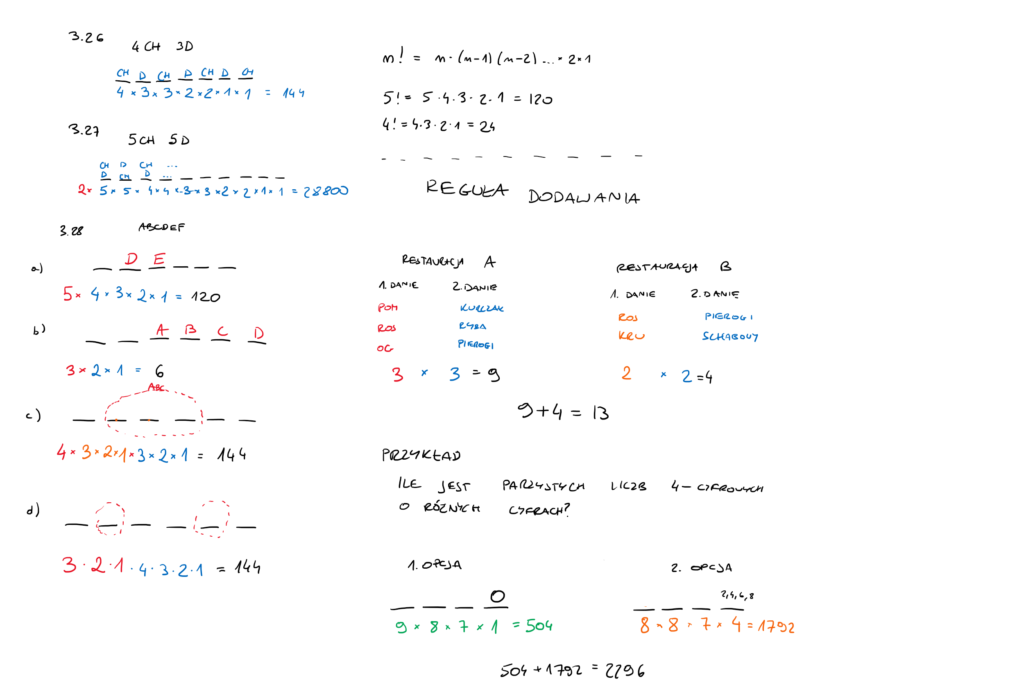 3.26
4 CH 3D
CH D CH D CH D CH
4 × 3 × 3 × 2 × 2 × 1 × 1 = 144
3.27
5 CH 5 D
CH D CH ...
D CH D ...
2 × 5 × 5 × 4 × 4 × 3 × 3 × 2 × 2 × 1 × 1 = 28800
3.28 ABCDEF
a)
D E
5 × 4 × 3 × 2 × 1 = 120
b)
A B C D
3 × 2 × 1 = 6
ABC
c)
4 × 3 × 2 × 1 × 3 × 2 × 1 = 144
d)
3 · 2 · 1 · 4 · 3 · 2 · 1 = 144
n! = n · (n-1) (n-2) ... · 2 · 1
5! = 5 · 4 · 3 · 2 · 1 = 120
4! = 4 · 3 · 2 · 1 = 24
REGUŁA DODAWANIA
RESTAURACJA A
1. DANIE 2. DANIE
POM KURCZAK
ROS RYBA
OG PIEROGI
3 × 3 = 9
RESTAURACJA B
1. DANIE 2. DANIE
ROS PIEROGI
KRU SCHABOWY
2 × 2 = 4
9 + 4 = 13
PRZYKŁAD
ILE JEST PARZYSTYCH LICZB 4 - CYFROWYCH
O RÓŻNYCH CYFRACH?
1. OPCJA
0
9 × 8 × 7 × 1 = 504
2. OPCJA
2,4,6,8
8 × 8 × 7 × 4 = 1792
504 + 1792 = 2296